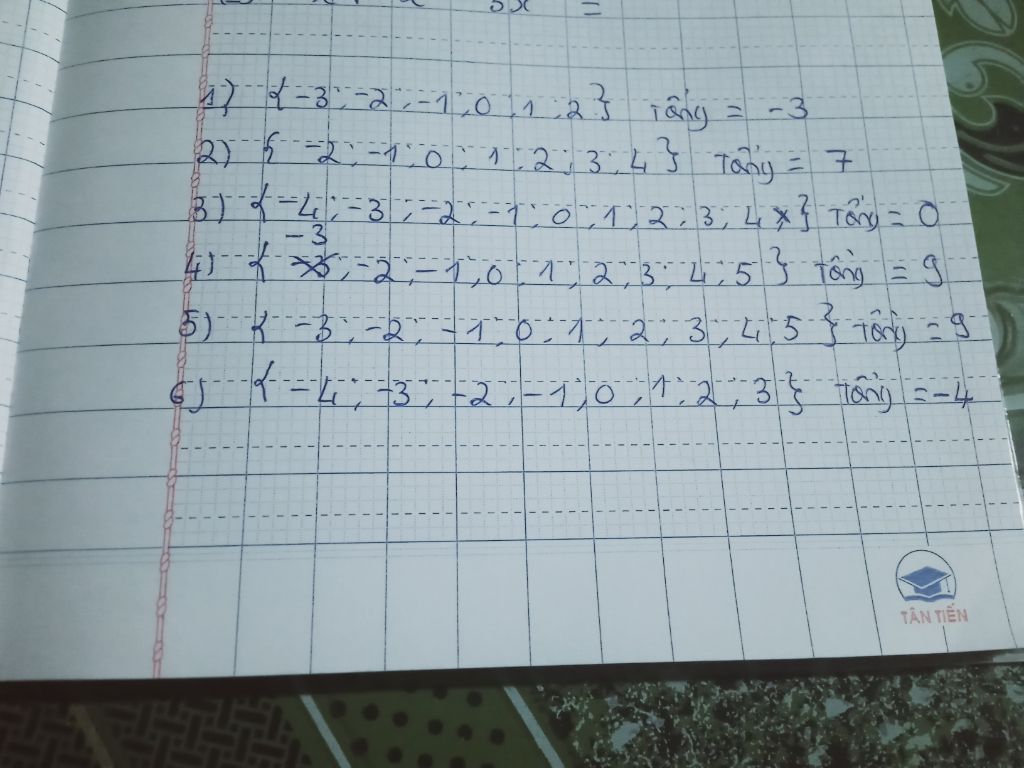 1) { -3 ; -2 ; -1 ; 0 ; 1 ; 2 } Tổng = -3
2) { -2 ; -1 ; 0 ; 1 ; 2 ; 3 ; 4 } Tổng = 7
3) { -4 ; -3 ; -2 ; -1 ; 0 ; 1 ; 2 ; 3 ; 4 } Tổng = 0
4) { -3 ; -2 ; -1 ; 0 ; 1 ; 2 ; 3 ; 4 ; 5 } Tổng = 9
5) { -3 ; -2 ; -1 ; 0 ; 1 ; 2 ; 3 ; 4 ; 5 } Tổng = 9
6) { -4 ; -3 ; -2 ; -1 ; 0 ; 1 ; 2 ; 3 } Tổng = -4
TÂN TIẾN